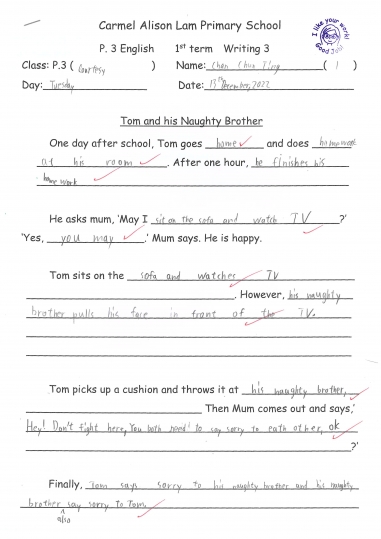 Carmel Alison Lam Primary School
I like your work!
Good Job
P. 3 English 1st term Writing 3
Class: P.3 ( Courtesy ) Name: Chan Chun Ting ( 1 )
Day: Tuesday Date: 13th December, 2022
Tom and his Naughty Brother
One day after school, Tom goes home and does homework
at his room. After one hour, he finishes his
homework
He asks mum, 'May I sit on the sofa and watch TV ?'
'Yes, you may .' Mum says. He is happy.
Tom sits on the sofa and watches TV
. However, his naughty
brother pulls his face in front of the TV.
Tom picks up a cushion and throws it at his naughty brother,
Then Mum comes out and says,'
Hey! Don't fight here, You both need to say sorry to eath other, ok
?'
Finally, Tom says sorry to his naughty brother and his naughty
brother say sorry to Tom,
also